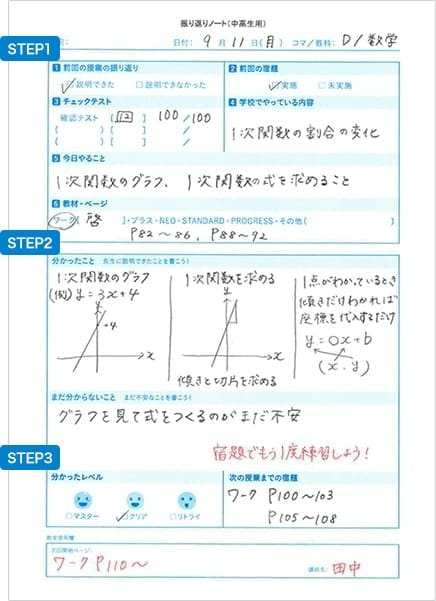 振り返りノート(中高生用)
STEP1
日付: 9月11日(月) コマ/教科: D/数学
1 前回の授業の振り返り
☑説明できた □説明できなかった
2 前回の宿題
☑実施 □未実施
3 チェックテスト
確認テスト [112] 100/100
( )[ ] /
( )[ ] /
4 学校でやっている内容
1次関数の割合の変化
5 今日やること
1次関数のグラフ、1次関数の式を求めること
6 教材・ページ
ワーク[啓]・プラス・NEO・STANDARD・PROGRESS・その他( )
P82〜86、P88〜92
STEP2
分かったこと 先生に説明できたことを書こう!
1次関数のグラフ
(例) y=3x+4
y
+4
x
1次関数を求める
y
x
傾きと切片を求める
1点がわかっているとき
傾きだけわかれば
座標を代入するだけ
y=0x+b
(x,y)
まだ分からないこと まだ不安なことを書こう!
グラフを見て式をつくるのがまだ不安
宿題でもう1度練習しよう!
STEP3
分かったレベル
□マスター ☑クリア □リトライ
次の授業までの宿題
ワーク P100〜103
P105〜108
教室使用欄
次回開始ページ:
ワークP110〜
講師名: 田中